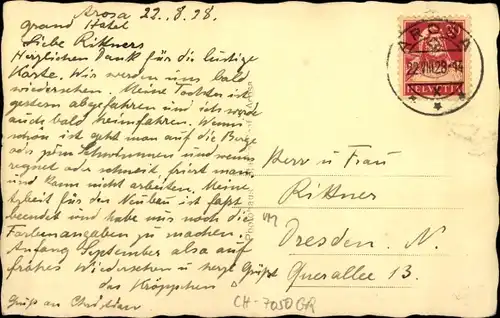 Arosa 22.8.28.
Grand Hotel
Liebe Rittners
Herzlichen Dank für die lustige
Karte. Wir werden uns bald
wiedersehen. Meine Tochter ist
gestern abgefahren und ich werde
auch bald heimfahren. Wenns
schön ist geht man auf die Berge
oder zum Schwimmen und wenns
regnet oder schneit, friert man
und kann nicht arbeiten. Meine
Arbeit für den Neubau ist fast
beendet und habe nur noch die
Farbenangaben zu machen.
Anfang September also auf
frohes Wiedersehen u herzl Grüße
das Kröppchen
Gruß an
AROSA
22.VIII.28-14
HELVETIA
Herr u Frau
Rittner
Dresden. N.
Querallee 13.
CH-7050 GR